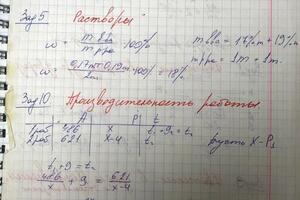 Зад 5 Растворы
ω = m в-ва / m р-ра · 100% m в-ва = 17%m + 19%m
m р-ра = 1m + 1m.
ω = 0,17m + 0,19m / 2m · 100% = 18%
Зад 10 Производительность работы
A P t
1раб 486 x t₁ + 9 = t₂
2раб 621 x-4 t₂ пусть X - P₁
t₁ + 9 = t₂
486 / x + 9 = 621 / x-4